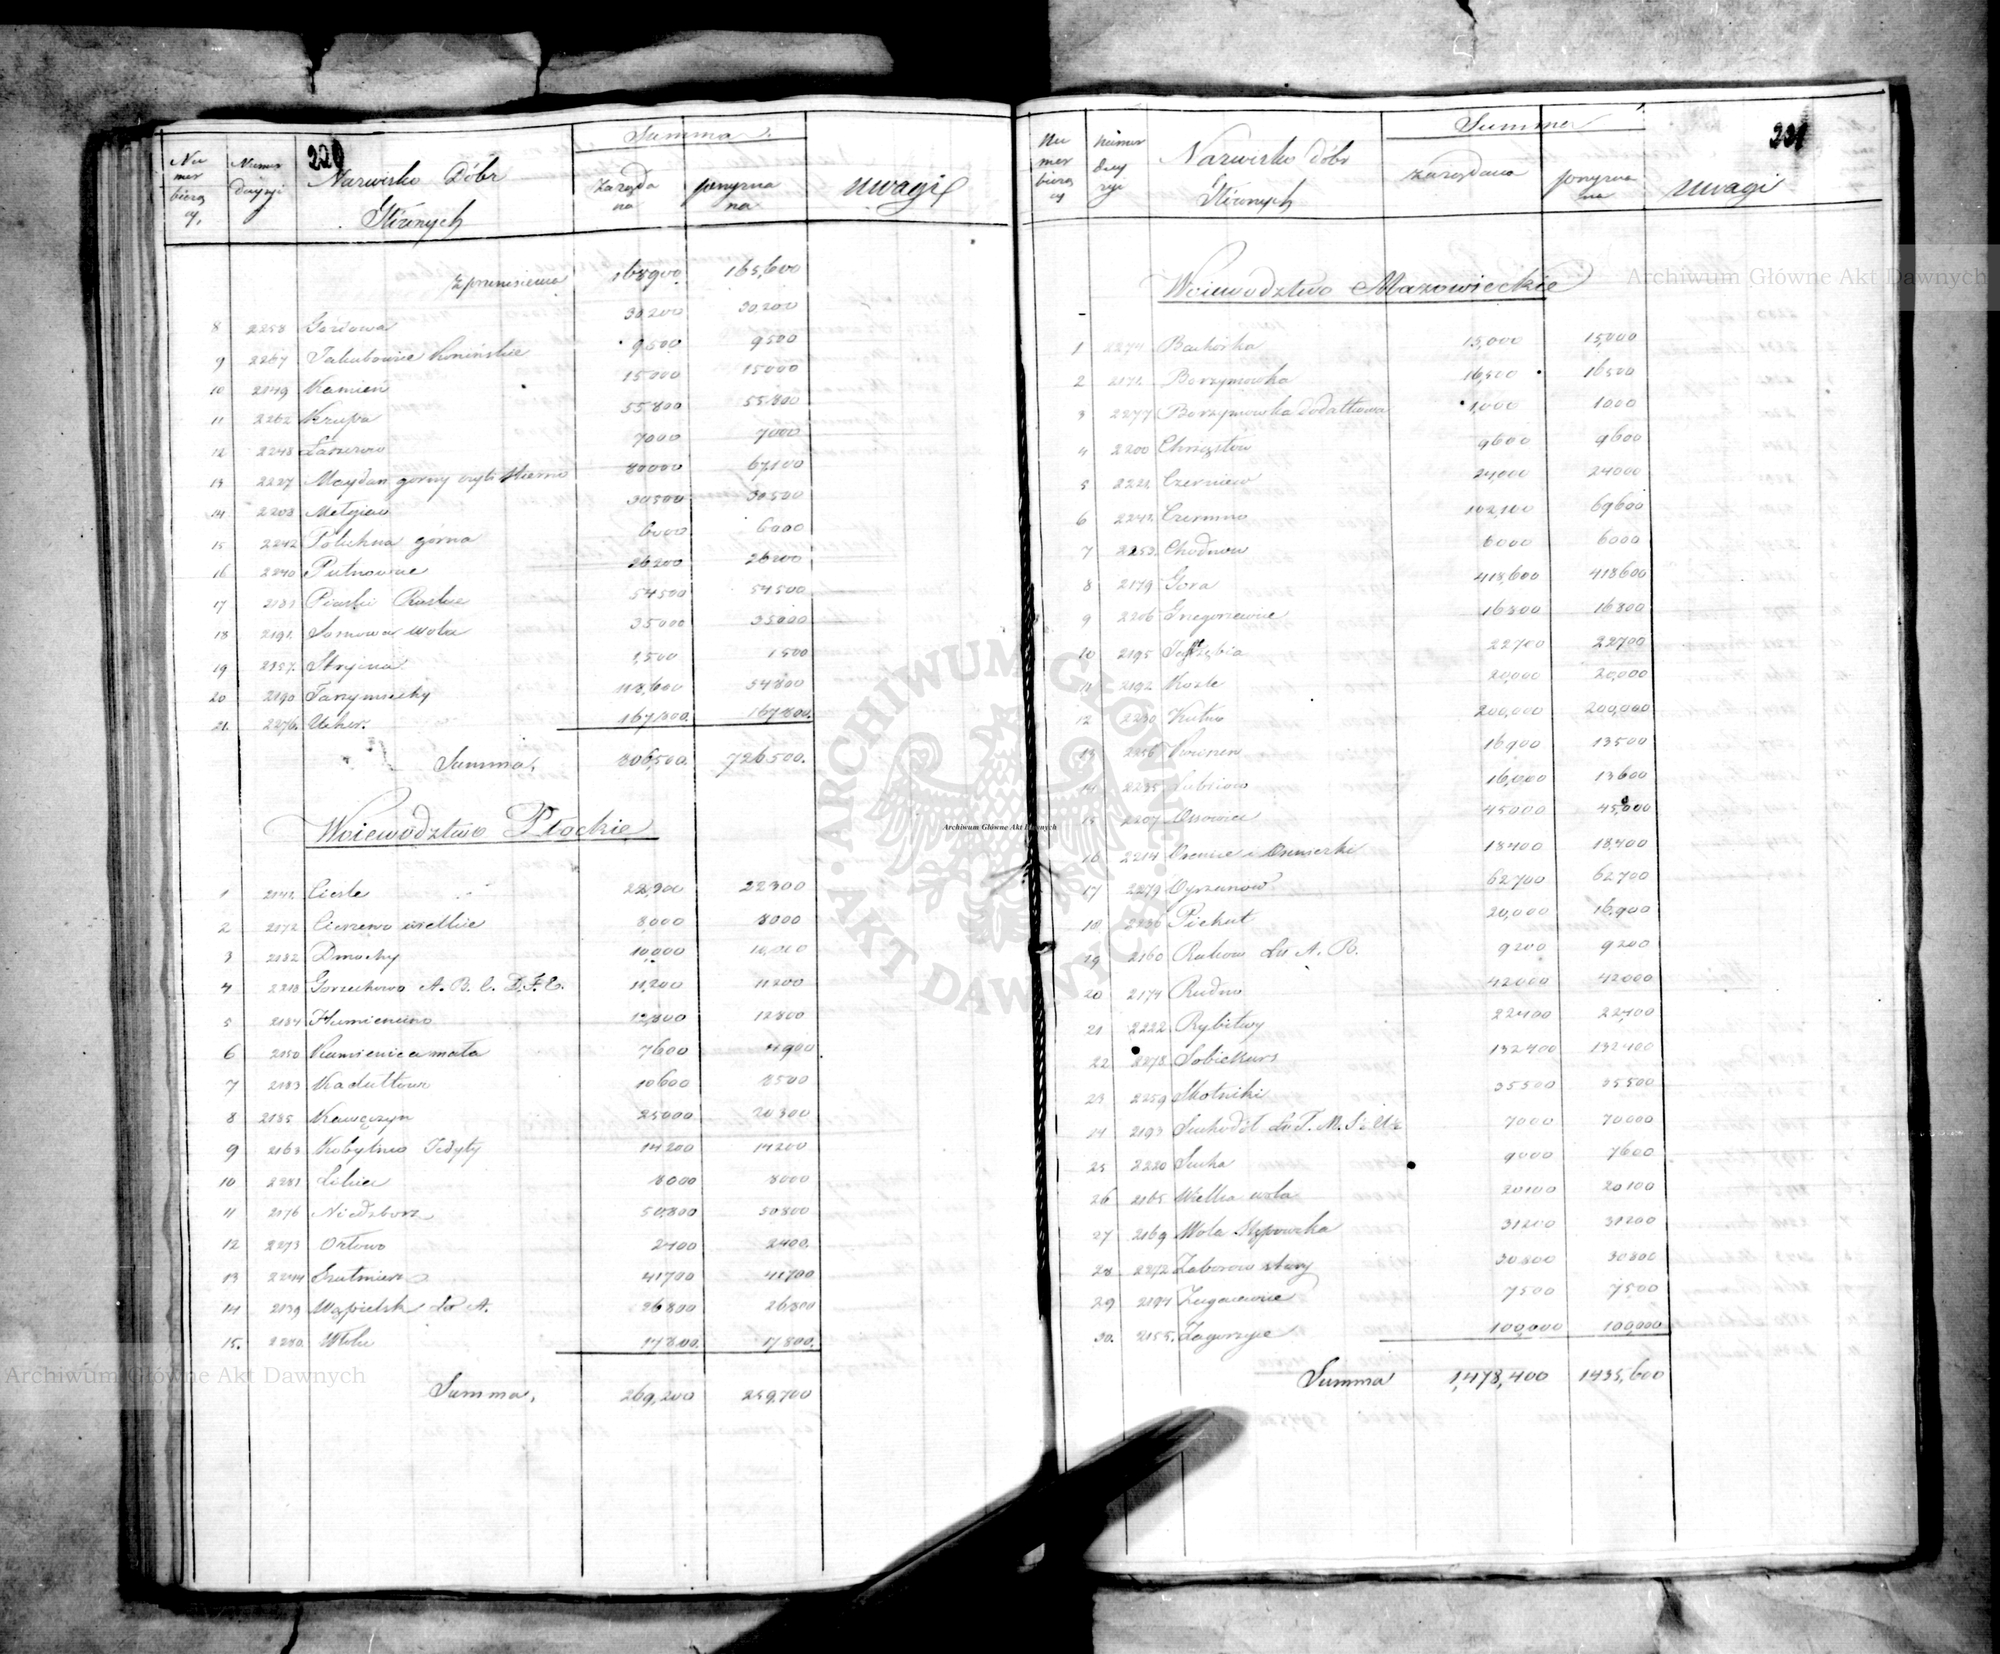 220
Summa.
Numer bieżący. Numer decyzji Nazwisko Dóbr Ziemnych zażądana przyzna na uwagi
z przeniesienia 168900 165,600
8 2258 30,200 30,200
9 2267 Jakubowice Konińskie 9500 9500
10 2149 Kamień 15000 15000
11 2262 Krupe 55,800 55,800
12 2248 7000 7000
13 2227 Maydan gorny 80000 67,100
14 2203 Mełgiew 30500 30500
15 2242 Polichna górna 6000 6000
16 2240 Putnowice 26200 26200
17 Piaski Ruskie 54500 54500
18 2191. wola 35000 35000
19 2157. Stryjna 1,500 1500
20 2190 Tarzymiechy 118,600 54800
21. 2276. Uher. 167,800. 167800.
Summa, 806,500. 726500.
Województwo Płockie
1 2141. Ciesle 22,300 22300
2 2172 Cieszewo wielkie 8,000 8000
3 2182 Dmochy 10,000 10,000
4 2218 Gorzechowo A. B. C. D. F. E. 11,200 11200
5 2184 Humienino 12,800 12800
6 2150 Kamienica mała 7600 4900
7 2183 Kadułtowo 10600 8500
8 2185 Kawęczyn 25000 20300
9 2163 Kobylnio Jedyty 14200 14200
10 2281 8000 8000
11 2176 Niedzborz 50,800 50,800
12 2273 Orłowo 2400 2400.
13 2244 Szulmierz 41700 41700
14 2139 Wąpielsk Lit A. 26800 26800
15. 2280. 17800. 17800.
Summa, 269,200 259,700
221
Summa
Numer bieżący Numer decyzji Nazwisko Dóbr Ziemnych zażądana przyzna na uwagi
Województwo Mazowieckie
1 2274 Bachorka 15,000 15,000
2 2171. Borzymowka 16,500 16500
3 2277 Borzymowka dodatkowa 1,000 1000
4 2200 Chrząstow 9600 9600
5 2221. Czerniew 24,000 24000
6 2247. Czermno 102,100 69600
7 2253. Chodnow 6000 6000
8 2179 Gora 418,600 418600
9 2206 Grzegorzewice 16800 16800
10 2195 Jastrzębia 22700 22700
11 2192 Kozle 20,000 20,000
12 2230 Kutno 200,000 200,000
13 2256 16900 13500
14 2235 16,000 13600
15 2207 Ossowice 45000 45,000
16 2214 18400 18,400
17 2279 Oyrzanow 62700 62700
18 2236 Piekut 20,000 16,900
19 2160 Rakow Lit A. B. 9200 9200
20 2174 Rudno 42000 42000
21 2222 Rybitwy 22400 22,400
22 2278 Sobiekurs 132400 132400
23 2259 Skotniki 35500 35500
24 2193 Suchodół Lit T. M. S: 7000 70000
25 2220 Sucha 9000 7600
26 2165 Wielka wola 20100 20100
27 2169 Wola Stępowska 31200 31200
28 2272 Zaborow stary 30.800 30800
29 2194 7500 7500
30. 2155. Zagorzyce 100,000 100,000
Summa 1,478,400 1435,600
Archiwum Główne Akt Dawnych
Archiwum Główne Akt Dawnych
Archiwum Główne Akt Dawnych
ARCHIWUM GŁÓWNE · AKT DAWNYCH ·